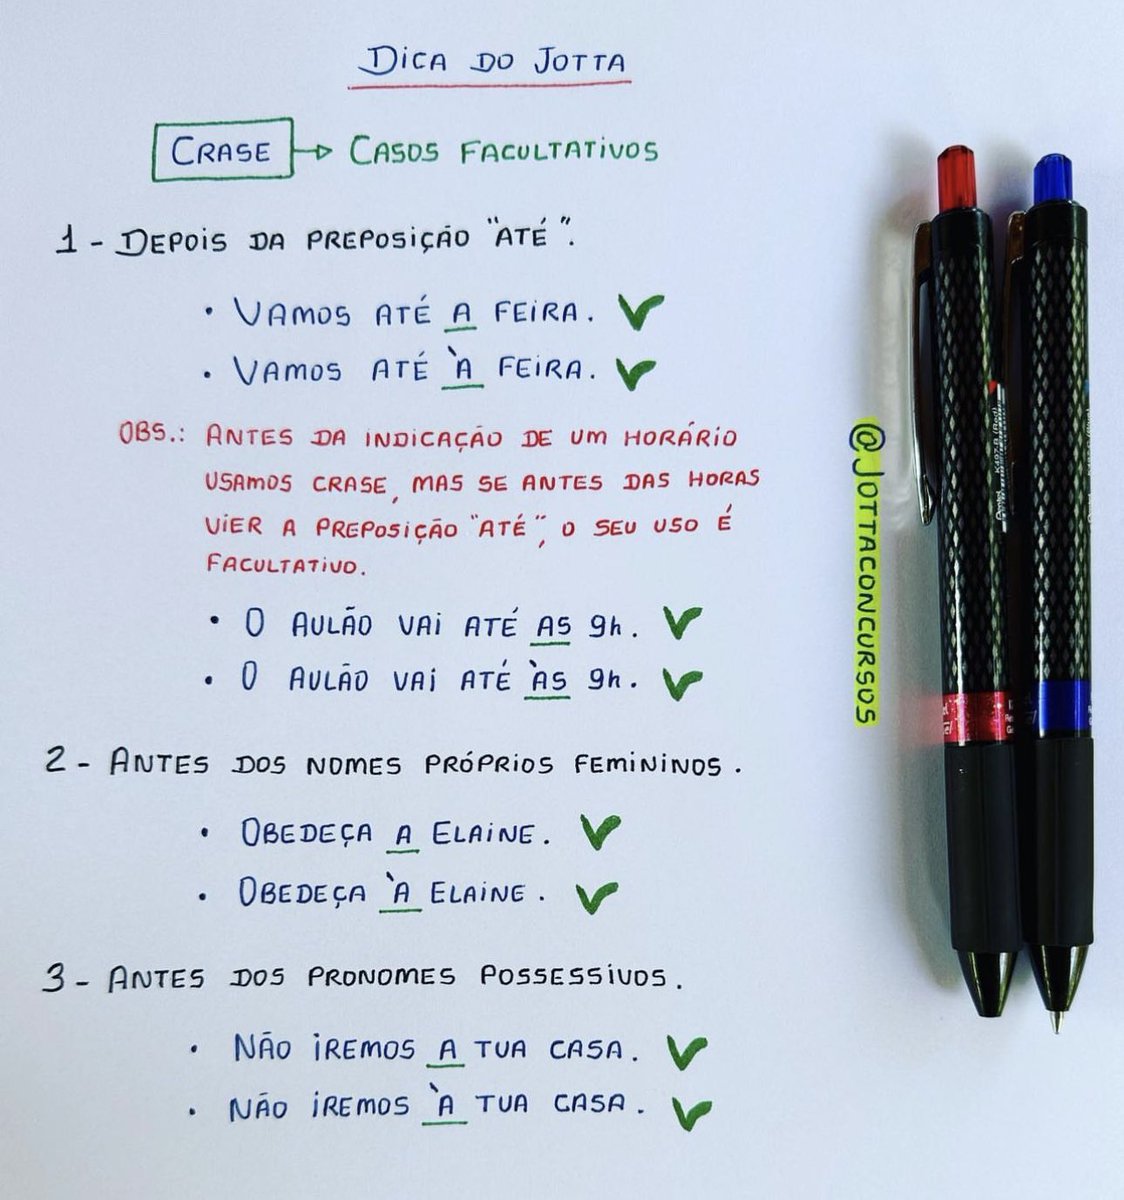 DICA DO JOTTA
CRASE → CASOS FACULTATIVOS
1 - DEPOIS DA PREPOSIÇÃO "ATÉ".
• VAMOS ATÉ A FEIRA. ✔
• VAMOS ATÉ À FEIRA. ✔
OBS.: ANTES DA INDICAÇÃO DE UM HORÁRIO
USAMOS CRASE, MAS SE ANTES DAS HORAS
VIER A PREPOSIÇÃO "ATÉ", O SEU USO É
FACULTATIVO.
• O AULÃO VAI ATÉ AS 9h. ✔
• O AULÃO VAI ATÉ ÀS 9h. ✔
2 - ANTES DOS NOMES PRÓPRIOS FEMININOS.
• OBEDEÇA A ELAINE. ✔
• OBEDEÇA À ELAINE. ✔
3 - ANTES DOS PRONOMES POSSESSIVOS.
• NÃO IREMOS A TUA CASA. ✔
• NÃO IREMOS À TUA CASA. ✔
@JOTTACONCURSOS
Pentel